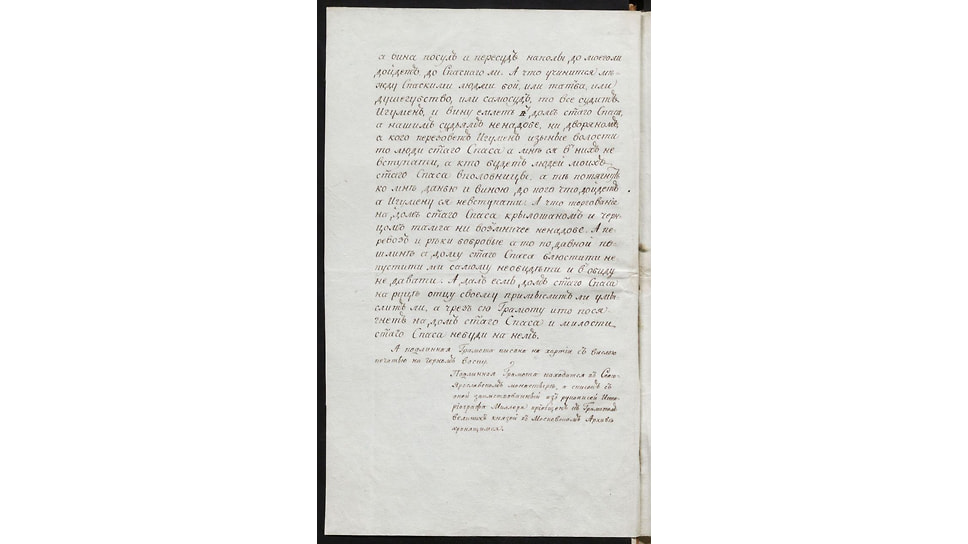 а вина посулъ и пересудъ наполы до моего ли
дойдетъ до Спаскаго ли. А что учинится ме-
жду Спаскими людми бой, или татба, или
душегубство, или самосудъ, то все судитъ
Игуменъ, и вину емлетъ въ домъ стаго Спаса,
а нашимъ судьямъ ненадобе, ни дворяномъ
а кого перезоветъ Игуменъ изыные волости
то люди стаго Спаса а мнѣ ся в нихъ не
вступати, а кто будетъ людей моихъ
стаго Спаса вполовницы, а тѣ потянутъ
ко мнѣ данью и виною до кого что дойдетъ
а Игумену ся невступати. А что торгование
на домъ стаго Спаса крылошаномъ и черн-
цомъ тамга ни возмничее ненадобе. А пе-
ревозъ и рѣки бобровые а то по давной по-
шлинѣ а дому стаго Спаса блюстити не
пустити ми самому необидѣти и в обиду
не давати. А далъ есмь домъ стаго Спаса
на руцѣ отцу своему примыслитъ ли умы-
слитъ ли, а чрезъ сю Грамоту кто пося-
гнетъ на домъ стаго Спаса и милости
стаго Спаса небуди на немъ.
А подлинная Грамота писана на хартіи съ вислою
печатью на черномъ воску.
Подлинная Грамота находится въ Спасо-
Ярославскомъ монастырѣ, а списокъ съ
оной заимствованный изъ рукописей Исто-
ріографа Миллера пріобщенъ къ Грамотамъ
великихъ князей въ Московскомъ Архивѣ
хранящимся.